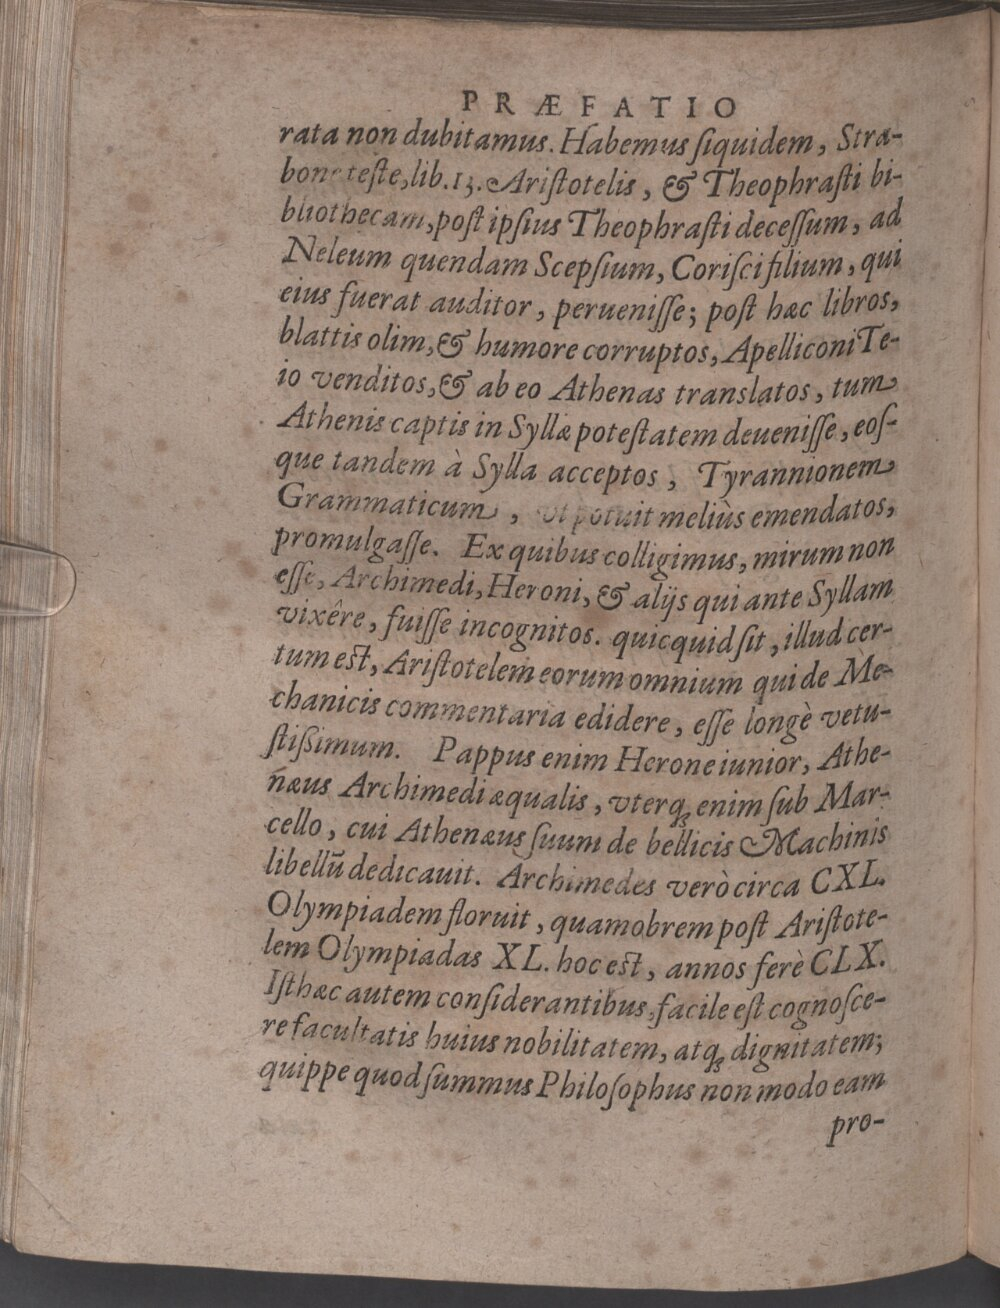 PRÆFATIO
rata non dubitamus. Habemus ſiquidem, Stra-
bone teſte, lib. 13. Ariſtotelis, & Theophraſti bi-
bliothecam, poſt ipſius Theophraſti deceſſum, ad
Neleum quendam Scepſium, Coriſci filium, qui
eius fuerat auditor, perueniſſe; poſt hæc libros,
blattis olim, & humore corruptos, Apelliconi Te-
io venditos, & ab eo Athenas translatos, tum
Athenis captis in Syllæ poteſtatem deueniſſe, eoſ-
que tandem à Sylla acceptos, Tyrannionem
Grammaticum, vt potuit meliùs emendatos,
promulgaſſe. Ex quibus colligimus, mirum non
eſſe, Archimedi, Heroni, & alijs qui ante Syllam
vixêre, fuiſſe incognitos. quicquid ſit, illud cer-
tum est, Ariſtotelem eorum omnium qui de Me-
chanicis commentaria edidere, eſſe longè vetu-
ſtiſsimum. Pappus enim Herone iunior, Athe-
næus Archimedi æqualis, vterq; enim ſub Mar-
cello, cui Athenæus ſuum de bellicis Machinis
libellũ dedicauit. Archimedes verò circa CXL.
Olympiadem floruit, quamobrem poſt Ariſtote-
lem Olympiadas XL. hoc est, annos ferè CLX.
Iſthæc autem conſiderantibus, facile eſt cognoſce-
re facultatis huius nobilitatem, atq; dignitatem;
quippe quod ſummus Philoſophus non modo eam
pro-